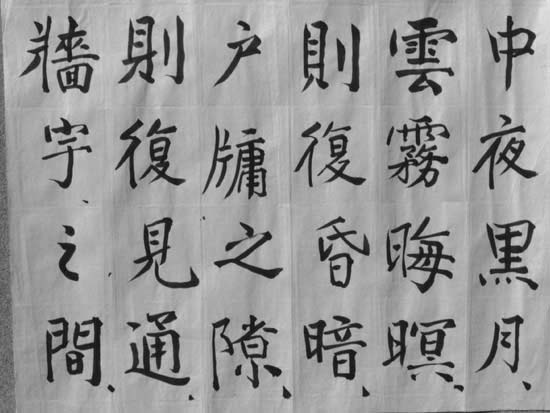 中夜黑月、
雲霧晦暝、
則復昏暗、
户牗之隙、
則復見通、
牆宇之間、